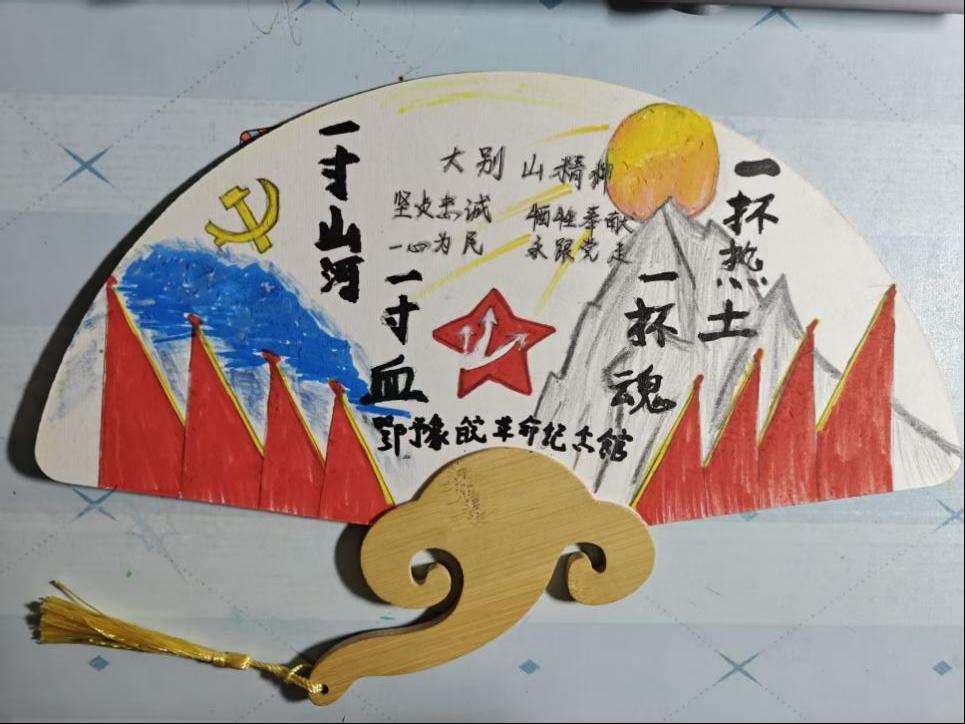 一寸山河
一寸血
大别山精神
坚贞忠诚 牺牲奉献
一心为民 永跟党走
一杯热土
一杯魂
鄂豫皖革命纪念馆